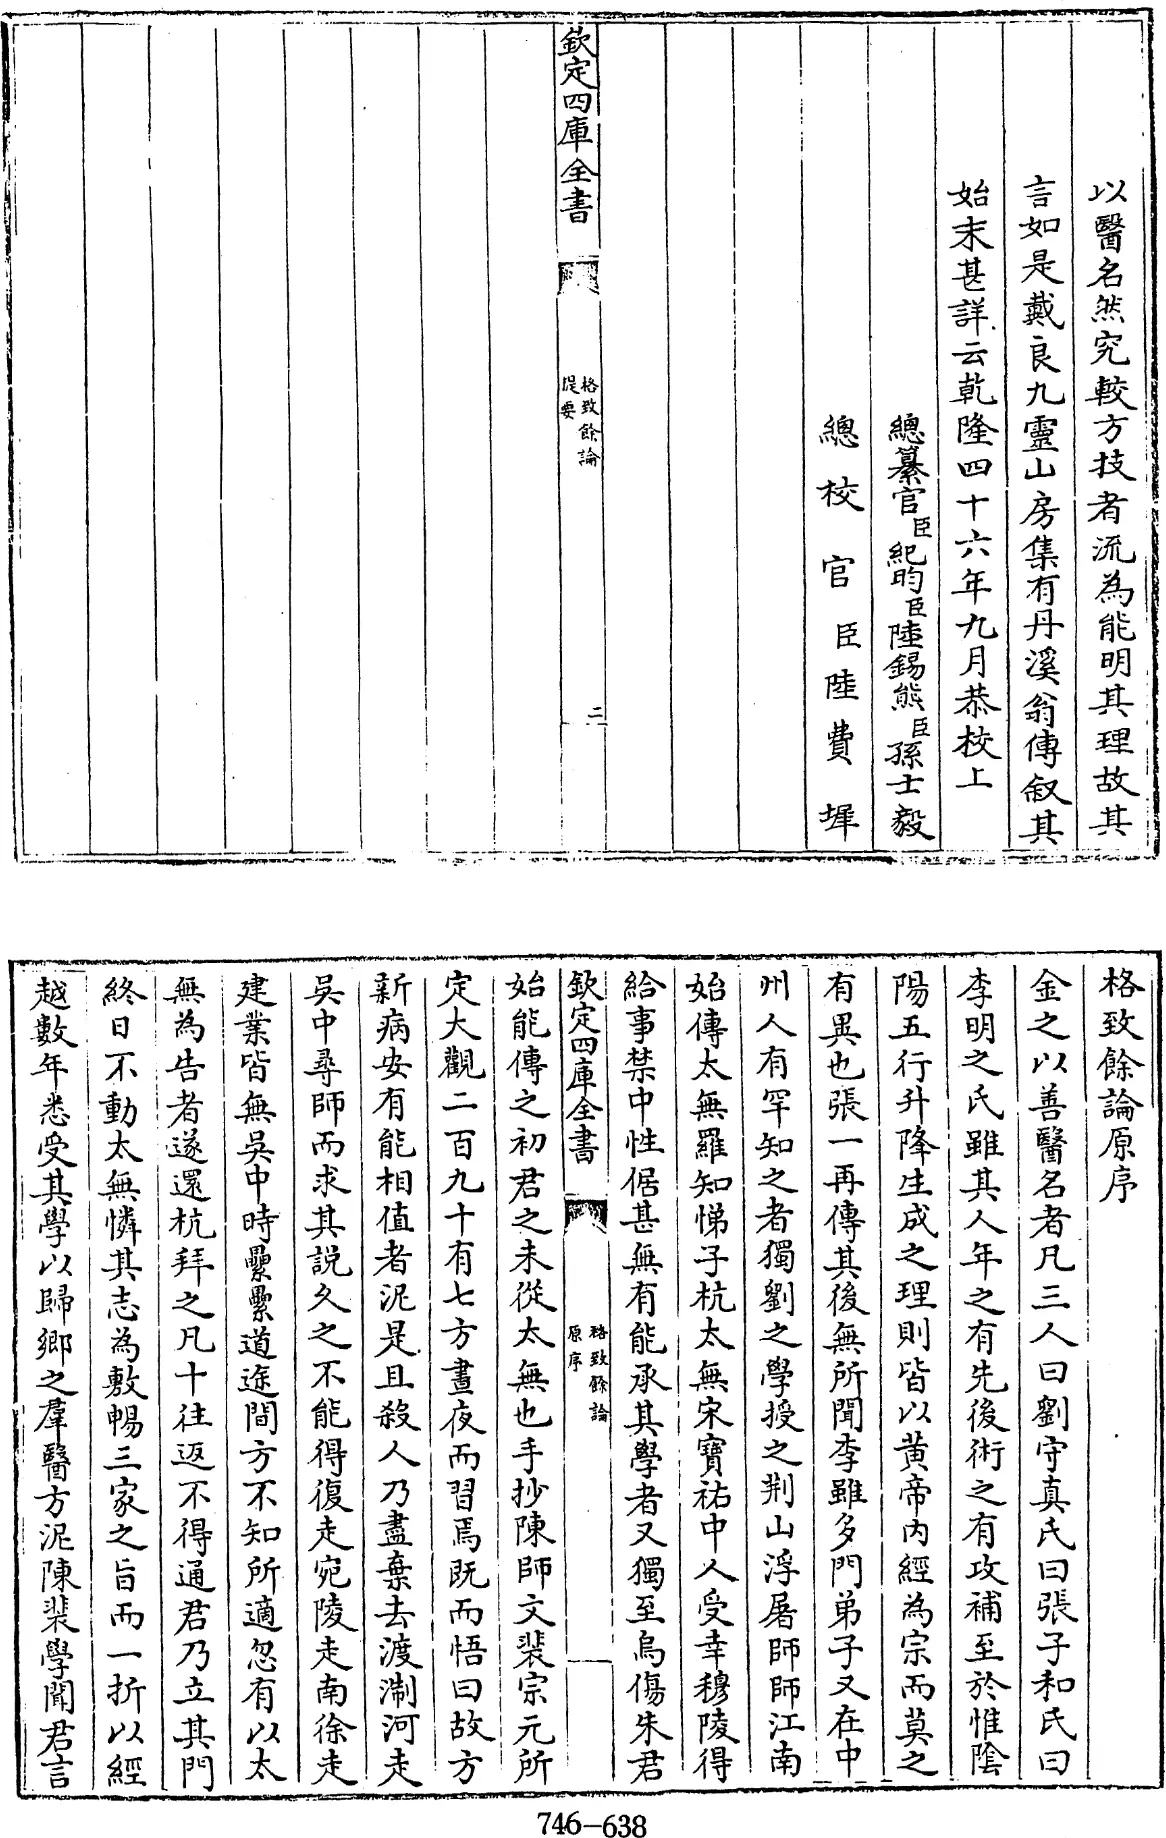 以醫名然究較方技者流為能明其理故其
言如是戴良九靈山房集有丹溪翁傳叙其
始末甚詳云乾隆四十六年九月恭校上
總纂官臣紀昀臣陸錫熊臣孫士毅
總校官臣陸費墀
欽定四庫全書
格致餘論
提要
二
格致餘論原序
金之以善醫名者凡三人曰劉守真氏曰張子和氏曰
李明之氏雖其人年之有先後術之有攻補至於惟陰
陽五行升降生成之理則皆以黄帝内經為宗而莫之
有異也張一再傳其後無所聞李雖多門弟子又在中
州人有罕知之者獨劉之學授之荆山浮屠師師江南
始傳太無羅知悌子杭太無宋寶祐中人受幸穆陵得
給事禁中性倨甚無有能承其學者又獨至烏傷朱君
欽定四庫全書
格致餘論
原序
一
始能傳之初君之未從太無也手抄陳師文裴宗元所
定大觀二百九十有七方晝夜而習焉既而悟曰故方
新病安有能相值者泥是且殺人乃盡棄去渡淛河走
吳中尋師而求其説久之不能得復走宛陵走南徐走
建業皆無吳中時纍纍道途間方不知所適忽有以太
無為告者遂還杭拜之凡十往返不得通君乃立其門
終日不動太無憐其志為敷暢三家之旨而一折以經
越數年悉受其學以歸鄉之羣醫方泥陳裴學聞君言
746-638